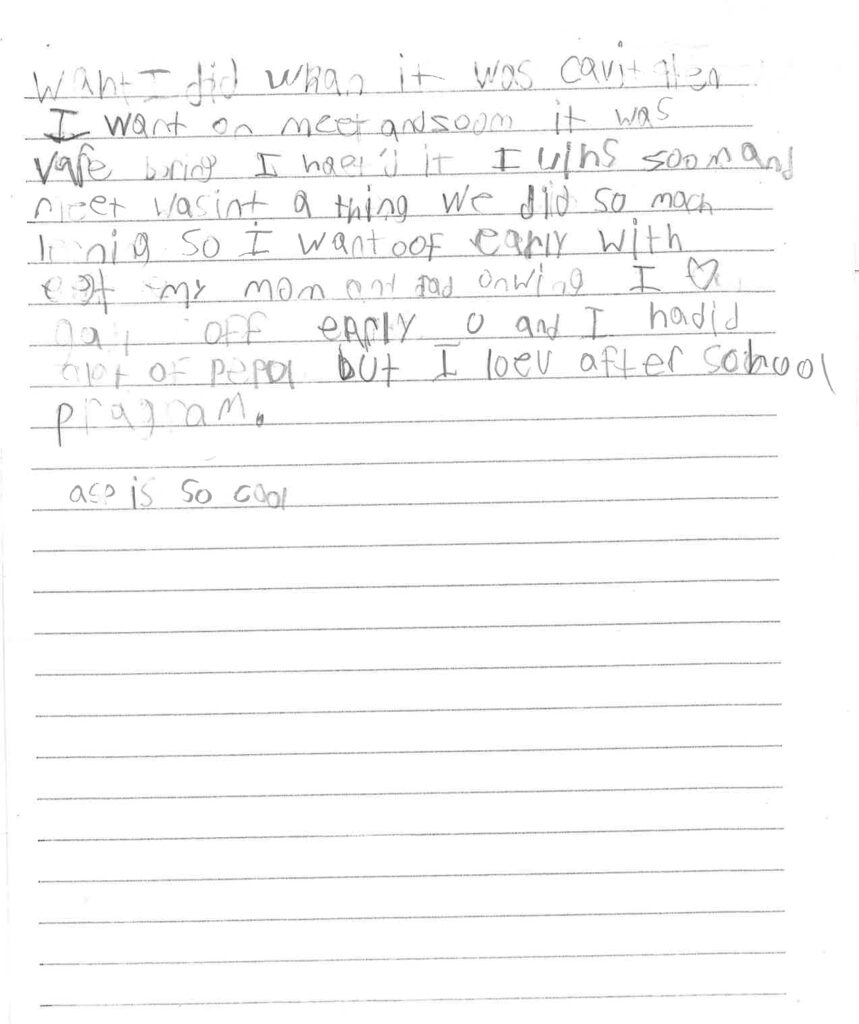 Want I did whan it was cavit
I want on meet and soom it was
vare boring I haet'd it I wihs soom and
meet wasint a thing we did so mach
so I want oof early with
my mom and dad onwing I ♡
off early and I hadid
alot of pepol but I loev after sohool
pragram.
asp is so cool